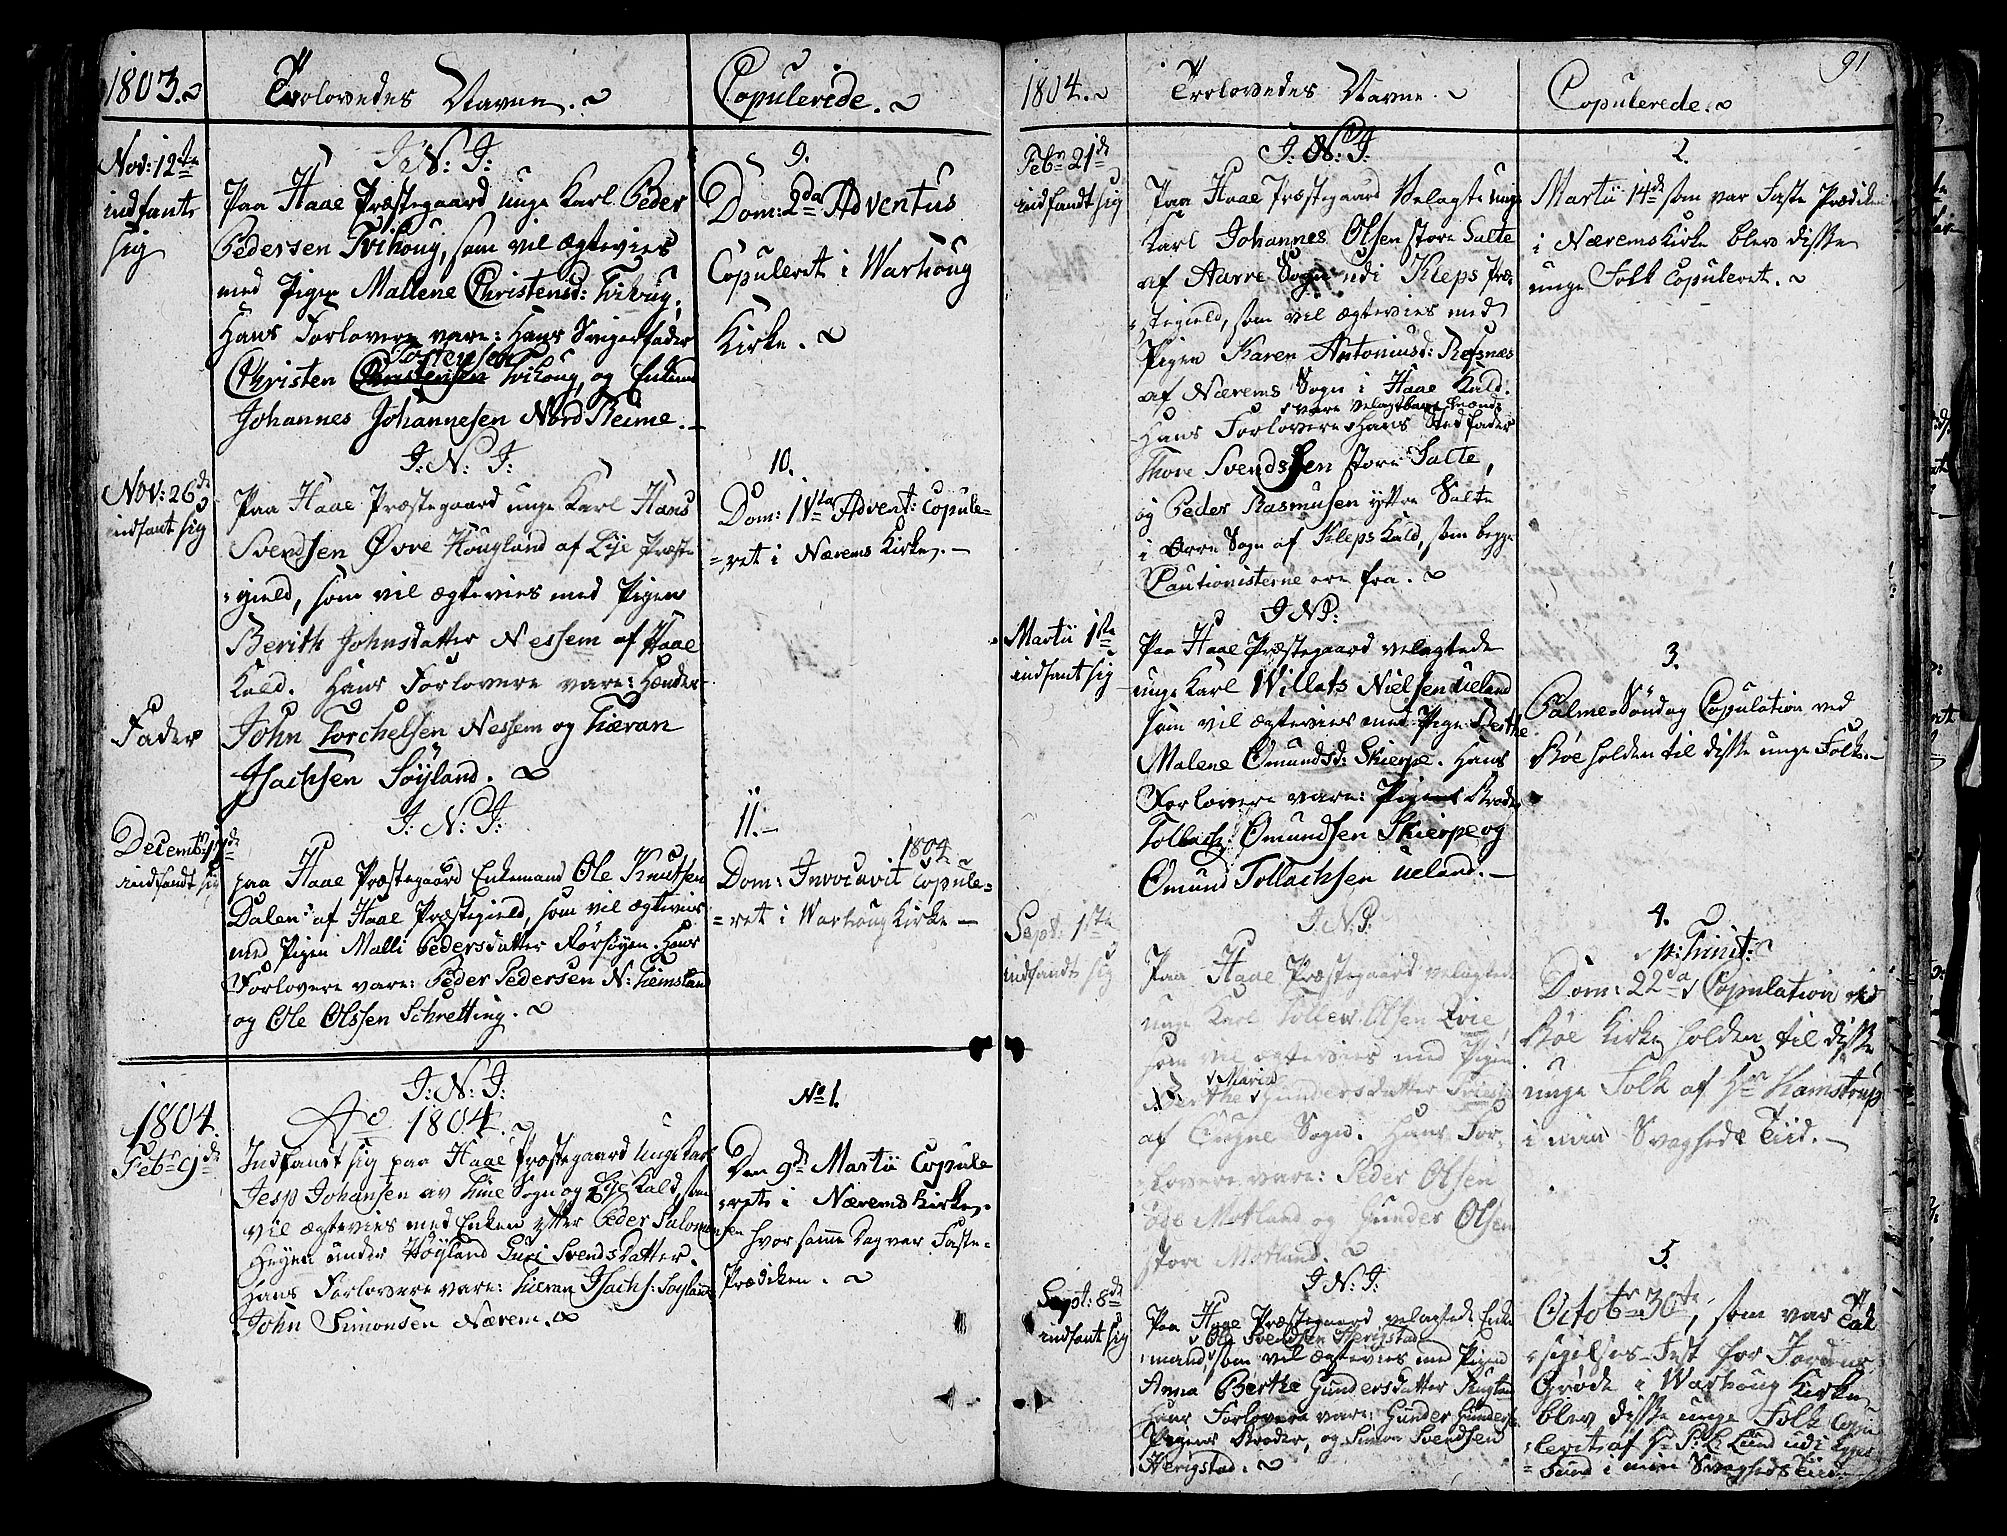 1803.
Trolovedes Navne.
Copulerede.
Nov: 12te
indfant
sig
J: N: J:
Paa Haae Præstegaard unge Karl Peder
Pedersen Tvihoug, som vil ægtevies
med Pigen Mallene Christensd: Tvihoug,
Hans Forlovere vare: Hans Svigerfader
Torgersen
Christen Christensen Tvihoug, og
Johannes Johannesen Nord Reime.
9.
Dom: 2da Adventus
Copuleret i Warhoug
Kirke.
Nov: 26de
indfant sig
J: N: J:
Paa Haae Præstegaard unge Karl Hans
Svendsen Øvre Hougland af Lye Præste
gield, som vil ægtevies med Pigen
Berith Johnsdatter Nessem af Haae
Kald. Hans Forlovere vare: Hendes
Fader
John Torchelsen Nessem og Tieran
Isachsen Søyland.
10.
Dom: IVta Advent: Copule=
=ret i Nærems Kirke.
Decembr: 17de
indfandt sig
J: N: J:
paa Haae Præstegaard Enkemand Ole Knutsen
Dalen af Haae Præstegield, som vil ægtevies
med Pigen Malli Pedersdatter Rörsöyen. Hans
Forlovere vare: Peder Pedersen N: Kiemsland
og Ole Olssen Schretting.
11.
1804
Dom: Invocavit Copule=
=ret i Warhoug Kirke
1804.
Febr 9de
J: N: J:
Ao 1804.
Indfandt sig paa Haae Præstegaard Unge Karl
Jesp Johansen av Time Sogn og Lye Kald, som
vil ægtevies med Enken efter Peder Salomon
sen
Heyen under Höyland Guri Svendsdatter.
Hans Forlovere vare: Tieran Isachs: Soyland
John Simonsen Nærem.
No 1.
Den 9de Martii Copule
ret i Nærems Kirke,
hvor samme Dag var Faste=
Prædiken.
1804.
Trolovedes Navne.
Copulerede.
91
Febr 21de
indfandt sig
J: N: J:
Paa Haae Præstegaard Velagte unge
Karl Johannes Olsen store Salte
af Aarre Sogn udi Kleps Præ=
stegield, som vil ægtevies med
Pigen Karen Antoniusd: Refsnæs
af Nærems Sogn i Haae Kald.
vare velagtbare Mænd
Hans Forlovere Hans Stedfader
Thore Svendsen store Salte,
og Peder Rasmusen yttre Salte
i Orre Sogn af Kleps Kald, som begge
Cautionisterne ere fra.
2.
Martii 14de som var Faste Prædiken
i Nærems Kirke blev disse
unge Folk Copuleret.
Martii 1ste
indfant sig
J: N: J:
Paa Haae Præstegaard velagtede
unge Karl Willats Nielsen Ueland
som vil ægtevies med Pige Berthe
Malene Omundsd: Skierpe. Hans
Forlovere vare: Pigens Broder
Tollach: Omundsen Skierpe og
Omund Tollachsen Ueland.
3.
Palme-Søndag Copulation ved
Böe holden til disse unge Folk.
Sept: 1ste
indfandt sig
J: N: J:
Paa Haae Præstegaard velagtede
unge Karl Tollev Olsen
som vil ægtevies med Pigen
Maria
Berthe Gundersdatter
af Ougne Sogn. Hans For=
lovere vare: Peder Olsen
öde Motland og Gunder Olsen
store Motland.
4.
p: Trinit:
Dom: 22da Copulation ved
Böe Kirke holden til disse
unge Folk af Hr Kamstrup
i min Svagheds Tiid.
Sept: 8de
indfant sig
J: N: J:
Paa Haae Præstegaard velagtede Enke
Ole Svendsen Herigstad
mand, som vil ægtevies med Pigen
Anna Berthe Gundersdatter
Hans Forlovere vare: Gunder Gunders:
Pigens Broder, og Simon Svendsen
Herigstad.
5.
Octobr 30te, som var Tak
sigelses-Fest for Jordens
Gröde i Warhoug Kirke
blev disse unge Folk Copu
lerit af Hr P: L: Lund udi Egers
=sund i min Svagheds Tiid.